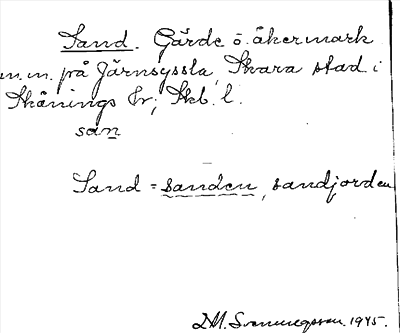 Sand. Gärde o. åkermark
m.m. på Järnsyssla, Skara stad i
Skånings hr; Skb. l.
san
Sand = sanden, sandjorden
D.A. Svenningsson. 1945.